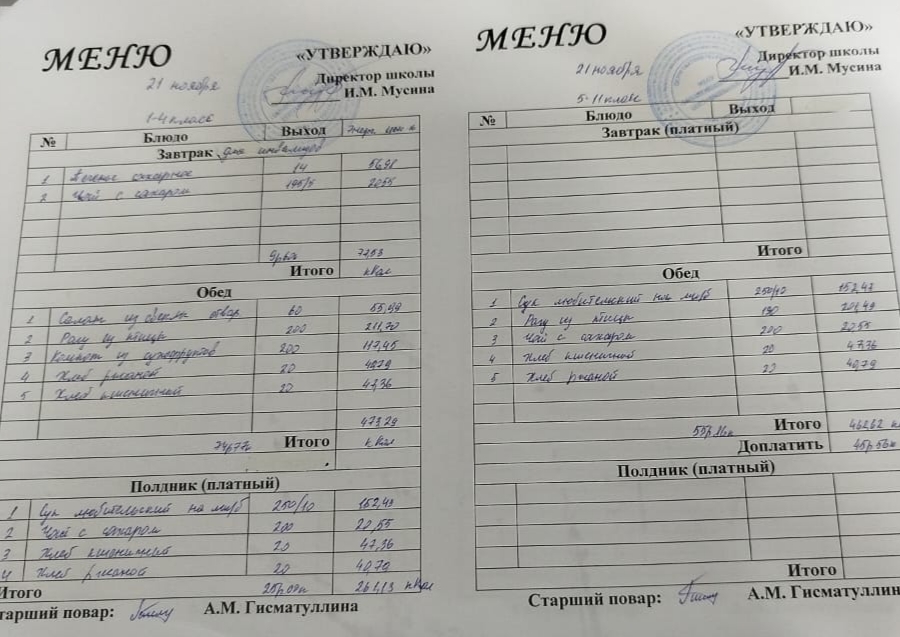 МЕНЮ
«УТВЕРЖДАЮ»
Директор школы
И.М. Мусина
21 ноября
1-4 класс
№ Блюдо Выход
Завтрак для инвалидов
1 Печенье сахарное 14 56,98
2 Чай с сахаром 195/5 20,55
77,53
Итого ккал
Обед
1 Салат из свеклы отвар 60 55,99
2 Рагу из птицы 200 211,70
3 Компот из сухофруктов 200 117,45
4 Хлеб ржаной 20 40,79
5 Хлеб пшеничный 20 47,36
473,29
74р77к Итого ккал
Полдник (платный)
1 Суп любительский на м/б 250/10 152,43
2 Чай с сахаром 200 20,55
3 Хлеб пшеничный 20 47,36
4 Хлеб ржаной 20 40,79
Итого 261,13 ккал
Старший повар: А.М. Гисматуллина
МЕНЮ
«УТВЕРЖДАЮ»
Директор школы
И.М. Мусина
21 ноября
5-11 класс
№ Блюдо Выход
Завтрак (платный)
Итого
Обед
1 Суп любительский на м/б 250/10 152,43
2 Рагу из птицы 190 201,49
3 Чай с сахаром 200 20,55
4 Хлеб пшеничной 20 47,36
5 Хлеб ржаной 20 40,79
55р16к Итого 462,62
Доплатить 45р56к
Полдник (платный)
Итого
Старший повар: А.М. Гисматуллина